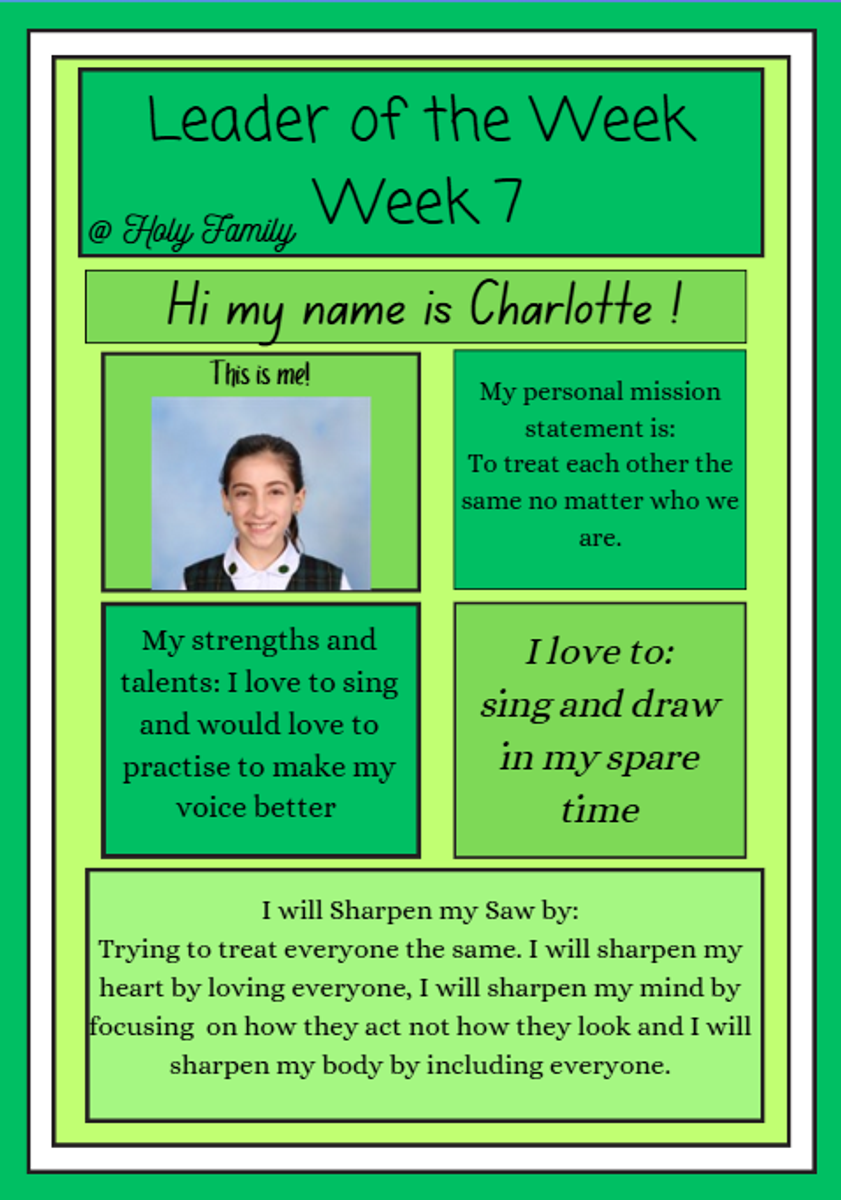 Leader of the Week
Week 7
@ Holy Family
Hi my name is Charlotte !
This is me!
My personal mission
statement is:
To treat each other the
same no matter who we
are.
My strengths and
talents: I love to sing
and would love to
practise to make my
voice better
I love to:
sing and draw
in my spare
time
I will Sharpen my Saw by:
Trying to treat everyone the same. I will sharpen my
heart by loving everyone, I will sharpen my mind by
focusing  on how they act not how they look and I will
sharpen my body by including everyone.